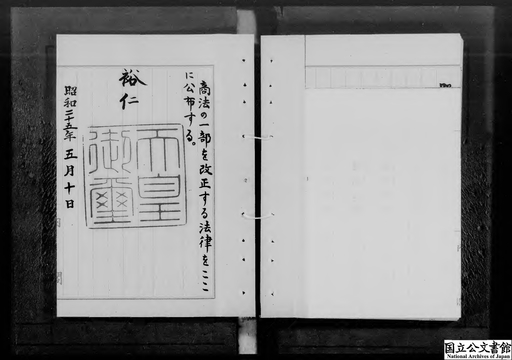 商法の一部を改正する法律をここ
に公布する。
裕仁
天皇
御璽
昭和二十五年五月十日
国立公文書館
National Archives of Japan